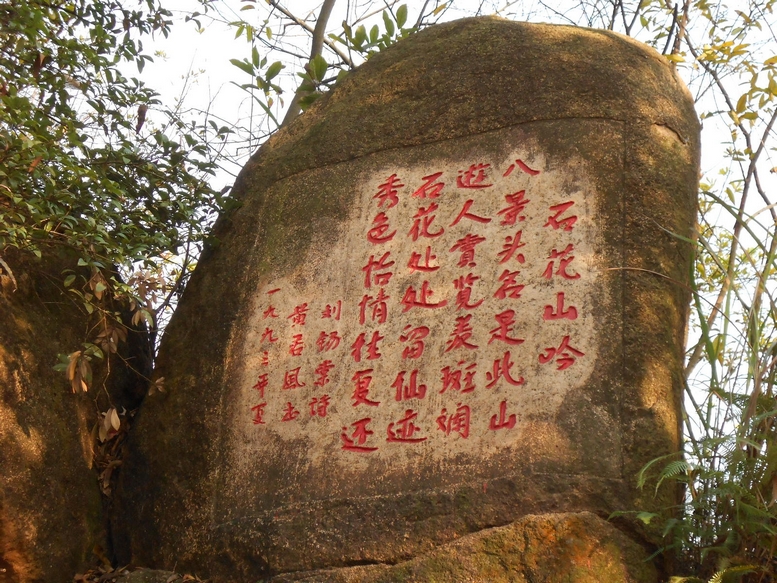 石花山吟
八景头名是此山
遊人賞覽羨斑斓
石花处处留仙迹
秀色怡情往复还
刘錫棠诗
黄君風书
一九九三年夏